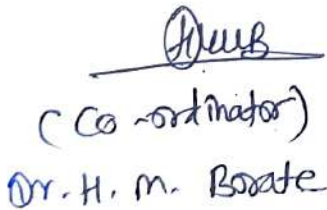 (Co-ordinator)
Dr. H. M. Borate